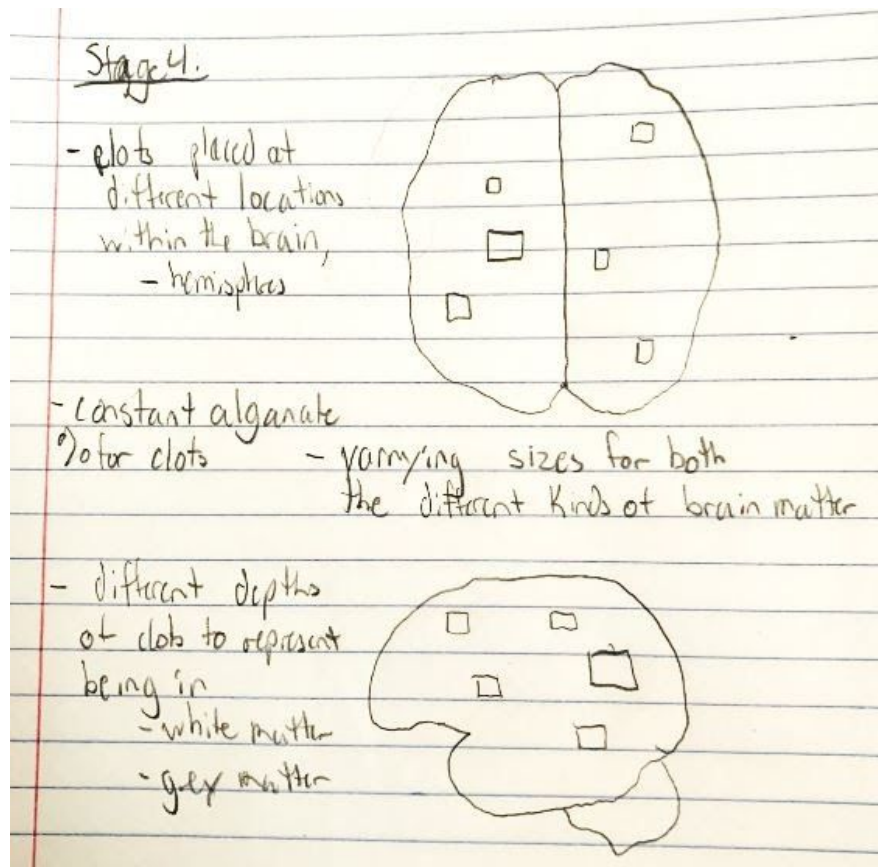 Stage 4.
- clots placed at
different locations
within the brain,
- hemisphres
- constant alganate
% for clots
- varrying sizes for both
the different kinds of brain matter
- different depths
of clots to represent
being in
- white matter
- grey matter